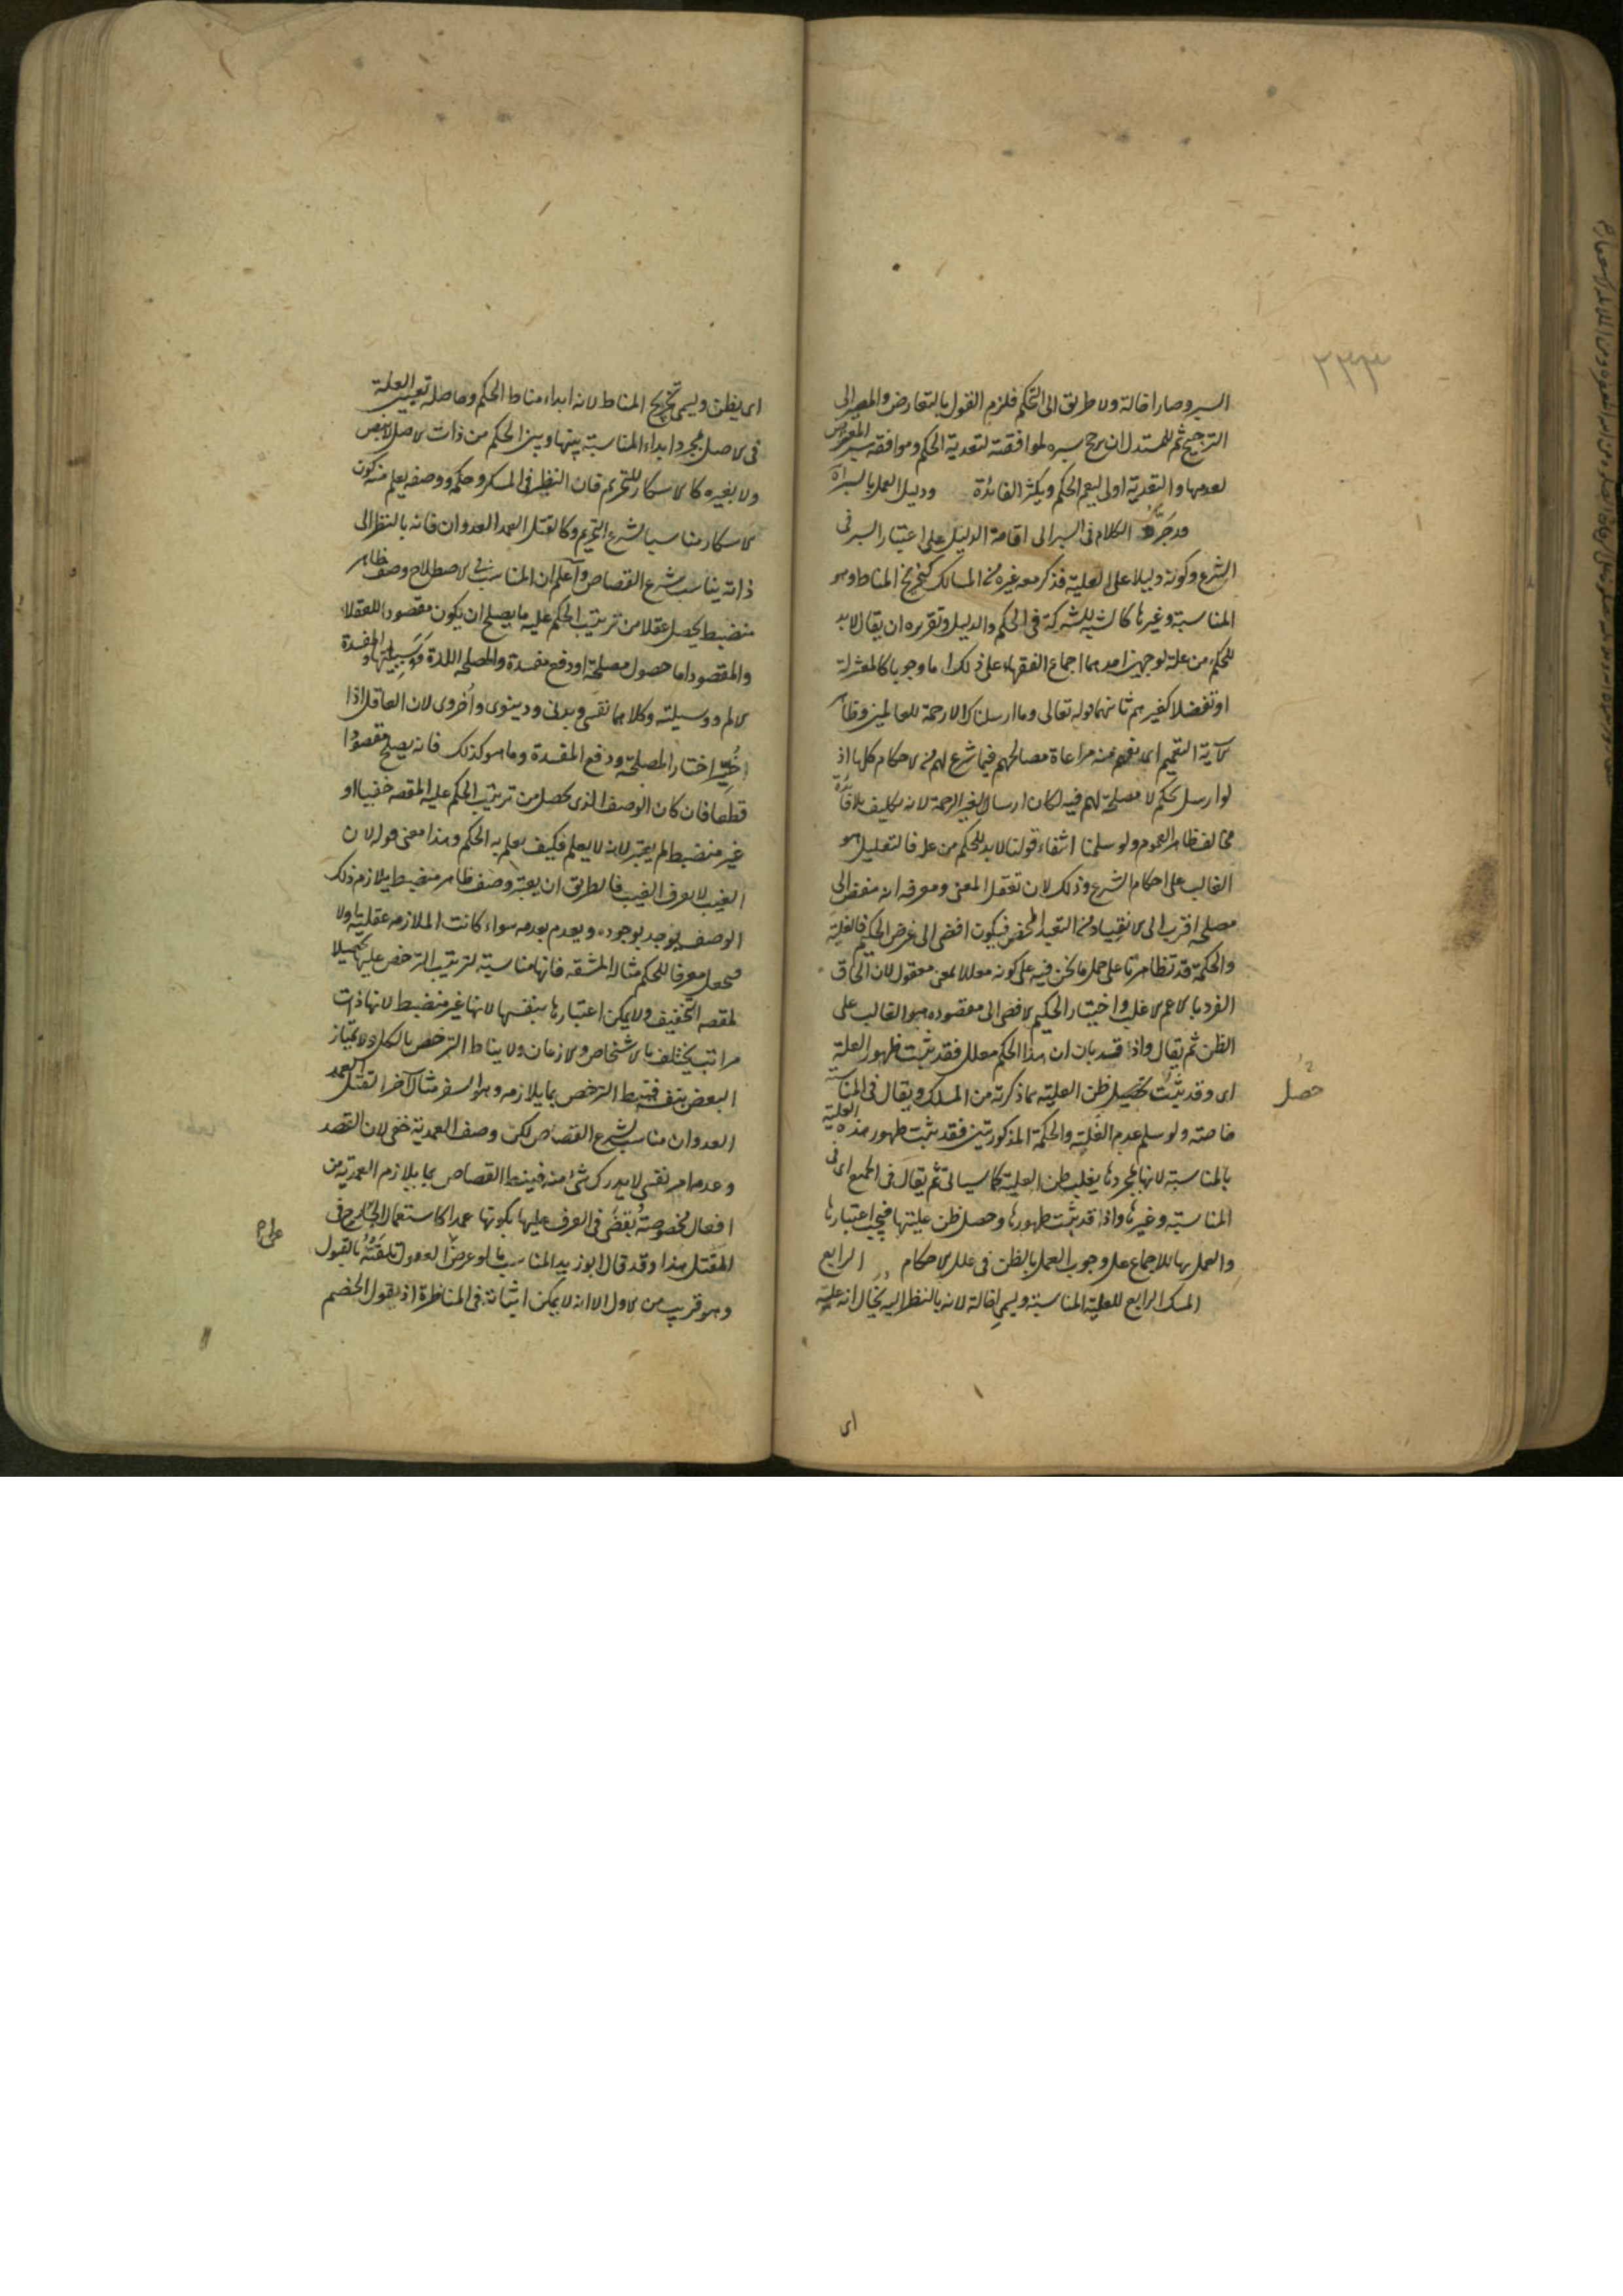 السبر وصار اخالة ولا طريق الى التحكم فلزم القول بالتعارض والمصير الى
الترجيح ثم للمستدل ان يرجح سبره لموافقته لتعدية الحكم وموافقه سبر المعترض
لعدمها والتعدية اولى ليعم الحكم ويكثر الفائدة ودليل العمل بالسبر آه
قد جَرَّد الكلام فى السبر الى اقامة الدليل على اعتبار السبر فى
الشرع وكونه دليلا على العلية فذكر معه غيره من المسالك كتخريج المناط وهو
المناسبة وغيرها كالشبه للشركة فى الحكم والدليل وتقريره ان يقال لا بد
للحكم من علة لوجهين احدهما اجماع الفقهاء على ذلك اما وجوبا كالمعتزلة
او تفضلا كغيرهم ثانيهما قوله تعالى وما ارسلناك الا رحمة للعالمين وظاهر
الآية التعميم اى يفهم منه مراعاة مصالحهم فيما شرع لهم من الاحكام كلها اذ
لو ارسل بحكم لا مصلحة لهم فيه لكان ارسالا لغير الرحمة لانه تكليف بلا فائدة
مخالف ظاهر العموم ولو سلمنا انتفاء قولنا لا بد للحكم من علة فالتعليل هو
الغالب على احكام الشرع وذلك لان تعقل المعنى ومعرفه انه مفض الى
مصلحه اقرب الى الانقياد من التعبد المحض فيكون افضى الى غرض الحكيم فالغلبة
والحكمة قد تظاهرتا على حمل ما نحن فيه على كونه معللا بمعنى معقول لان الحاق
الفرد بالاعم الاغلب واختيار الحكيم الافضى الى مقصوده هو الغالب على
الظن ثم يقال واذا قد بان ان هذا الحكم معلل فقد ثبت ظهور العلة
اى وقد ثبت تحصيل ظن العلية بما ذكرته من المسلك ويقال فى المناسبة
حصل
خاصته ولو سلم عدم الغلبة والحكمة المذكورتين فقد ثبت ظهور هذه العلية
بالمناسبة لانها بمجردها يغلب ظن العلية كما سياتى ثم يقال فى الجميع اى فى
المناسبة وغيرها واذا قد ثبت ظهورها وحصل ظن عليتها فيجب اعتبارها
والعمل بها للاجماع على وجوب العمل بالظن فى علل الاحكام الرابع
المسلك الرابع للعلية المناسبة ويسمى اخالة لانه بالنظر اليه يخال انه علية
اى
اى يظن ويسمى تخريج المناط لانه ابداء مناط الحكم وحاصله تعيين العلة
فى الاصل بمجرد ابداء المناسبة بينها وبين الحكم من ذات الاصل لا بنص
ولا بغيره كالاسكار للتحريم فان النظر فى المسكر وحكمه ووصفه يعلم منه كون
الاسكار مناسبا لشرع التحريم وكالقتل العمد العدوان فانه بالنظر الى
ذاته يناسب شرع القصاص واعلم ان المناسب فى الاصطلاح وصف ظاهر
منضبط يحصل عقلا من ترتيب الحكم عليه ما يصلح ان يكون مقصودا للعقلاء
والمقصود اما حصول مصلحة او دفع مفسدة والمصلحه اللذة ووسيلتها والمفسدة
الالم ووسيلته وكلاهما نفسى وبدنى ودينوى واُخروى لان العاقل اذا
خُيِّر اختار المصلحة ودفع المفسدة وما هو كذلك فانه يصلح مقصودا
قطعا فان كان الوصف الذى يحصل من ترتيب الحكم عليه المقصد خفيا او
غير منضبط لم يعتبر لانه لا يعلم فكيف يعلم به الحكم وهذا معنى قوله لان
الغيب لا يعرف الغيب فالطريق ان يعتبر وصف ظاهر منضبط يلازم ذلك
الوصف يوجد بوجوده ويعدم بعدمه سواء كانت الملازمه عقلية او لا
فيجعل معرفا للحكم مثاله المشقه فانها مناسبة لترتيب الترخص عليها تحصيلا
لمقصد التخفيف ولا يمكن اعتبارها بنفسها لانها غير منضبط لانها ذات
مراتب يختلف بالاشخاص والازمان ولا يناط الترخص بالكل ولا يمتاز
البعض بنفسه فنيط الترخص بما يلازمه وهو السفر مثال آخر القتل العمد
العدوان مناسب لشرع القصاص لكن وصف العمدية خفى لان القصد
وعدمه امر نفسى لا يدرك شئ منه فينط القصاص بما يلازم العمدية من
افعال مخصوصة يُقضى فى العرف عليها بكونها عمدا كاستعمال الجارح فى
المقتل هذا وقد قال ابو زيد المناسب ما لو عرض العقول تلقته بالقبول
وهو قريب من الاول الا انه لا يمكن اثباته فى المناظرة اذ يقول الخصم